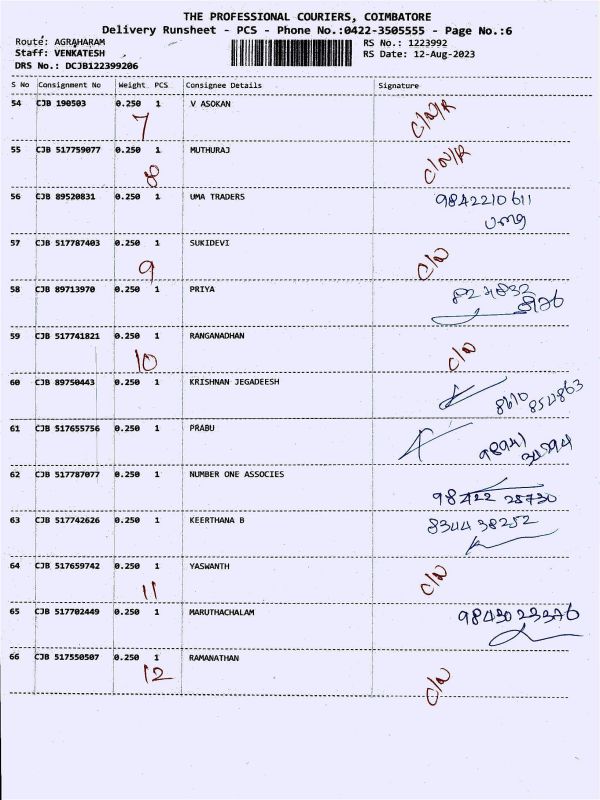 THE PROFESSIONAL COURIERS, COIMBATORE
Delivery Runsheet - PCS - Phone No.:0422-3505555 - Page No.:6
Route: AGRAHARAM RS No.: 1223992
Staff: VENKATESH RS Date: 12-Aug-2023
DRS No.: DCJB122399206
S No Consignment No Weight PCS Consignee Details Signature
54 CJB 190503 0.250 1 V ASOKAN C/N/R
7
55 CJB 517759077 0.250 1 MUTHURAJ C/N/R
8
56 CJB 89520831 0.250 1 UMA TRADERS 9842210611
uma
57 CJB 517787403 0.250 1 SUKIDEVI C/N
9
58 CJB 89713970 0.250 1 PRIYA
59 CJB 517741821 0.250 1 RANGANADHAN C/N
10
60 CJB 89750443 0.250 1 KRISHNAN JEGADEESH 8610
61 CJB 517655756 0.250 1 PRABU
62 CJB 517787077 0.250 1 NUMBER ONE ASSOCIES
98422 28730
63 CJB 517742626 0.250 1 KEERTHANA B 8344 38252
64 CJB 517659742 0.250 1 YASWANTH C/N
11
65 CJB 517702449 0.250 1 MARUTHACHALAM 9843023376
66 CJB 517550507 0.250 1 RAMANATHAN C/N
12